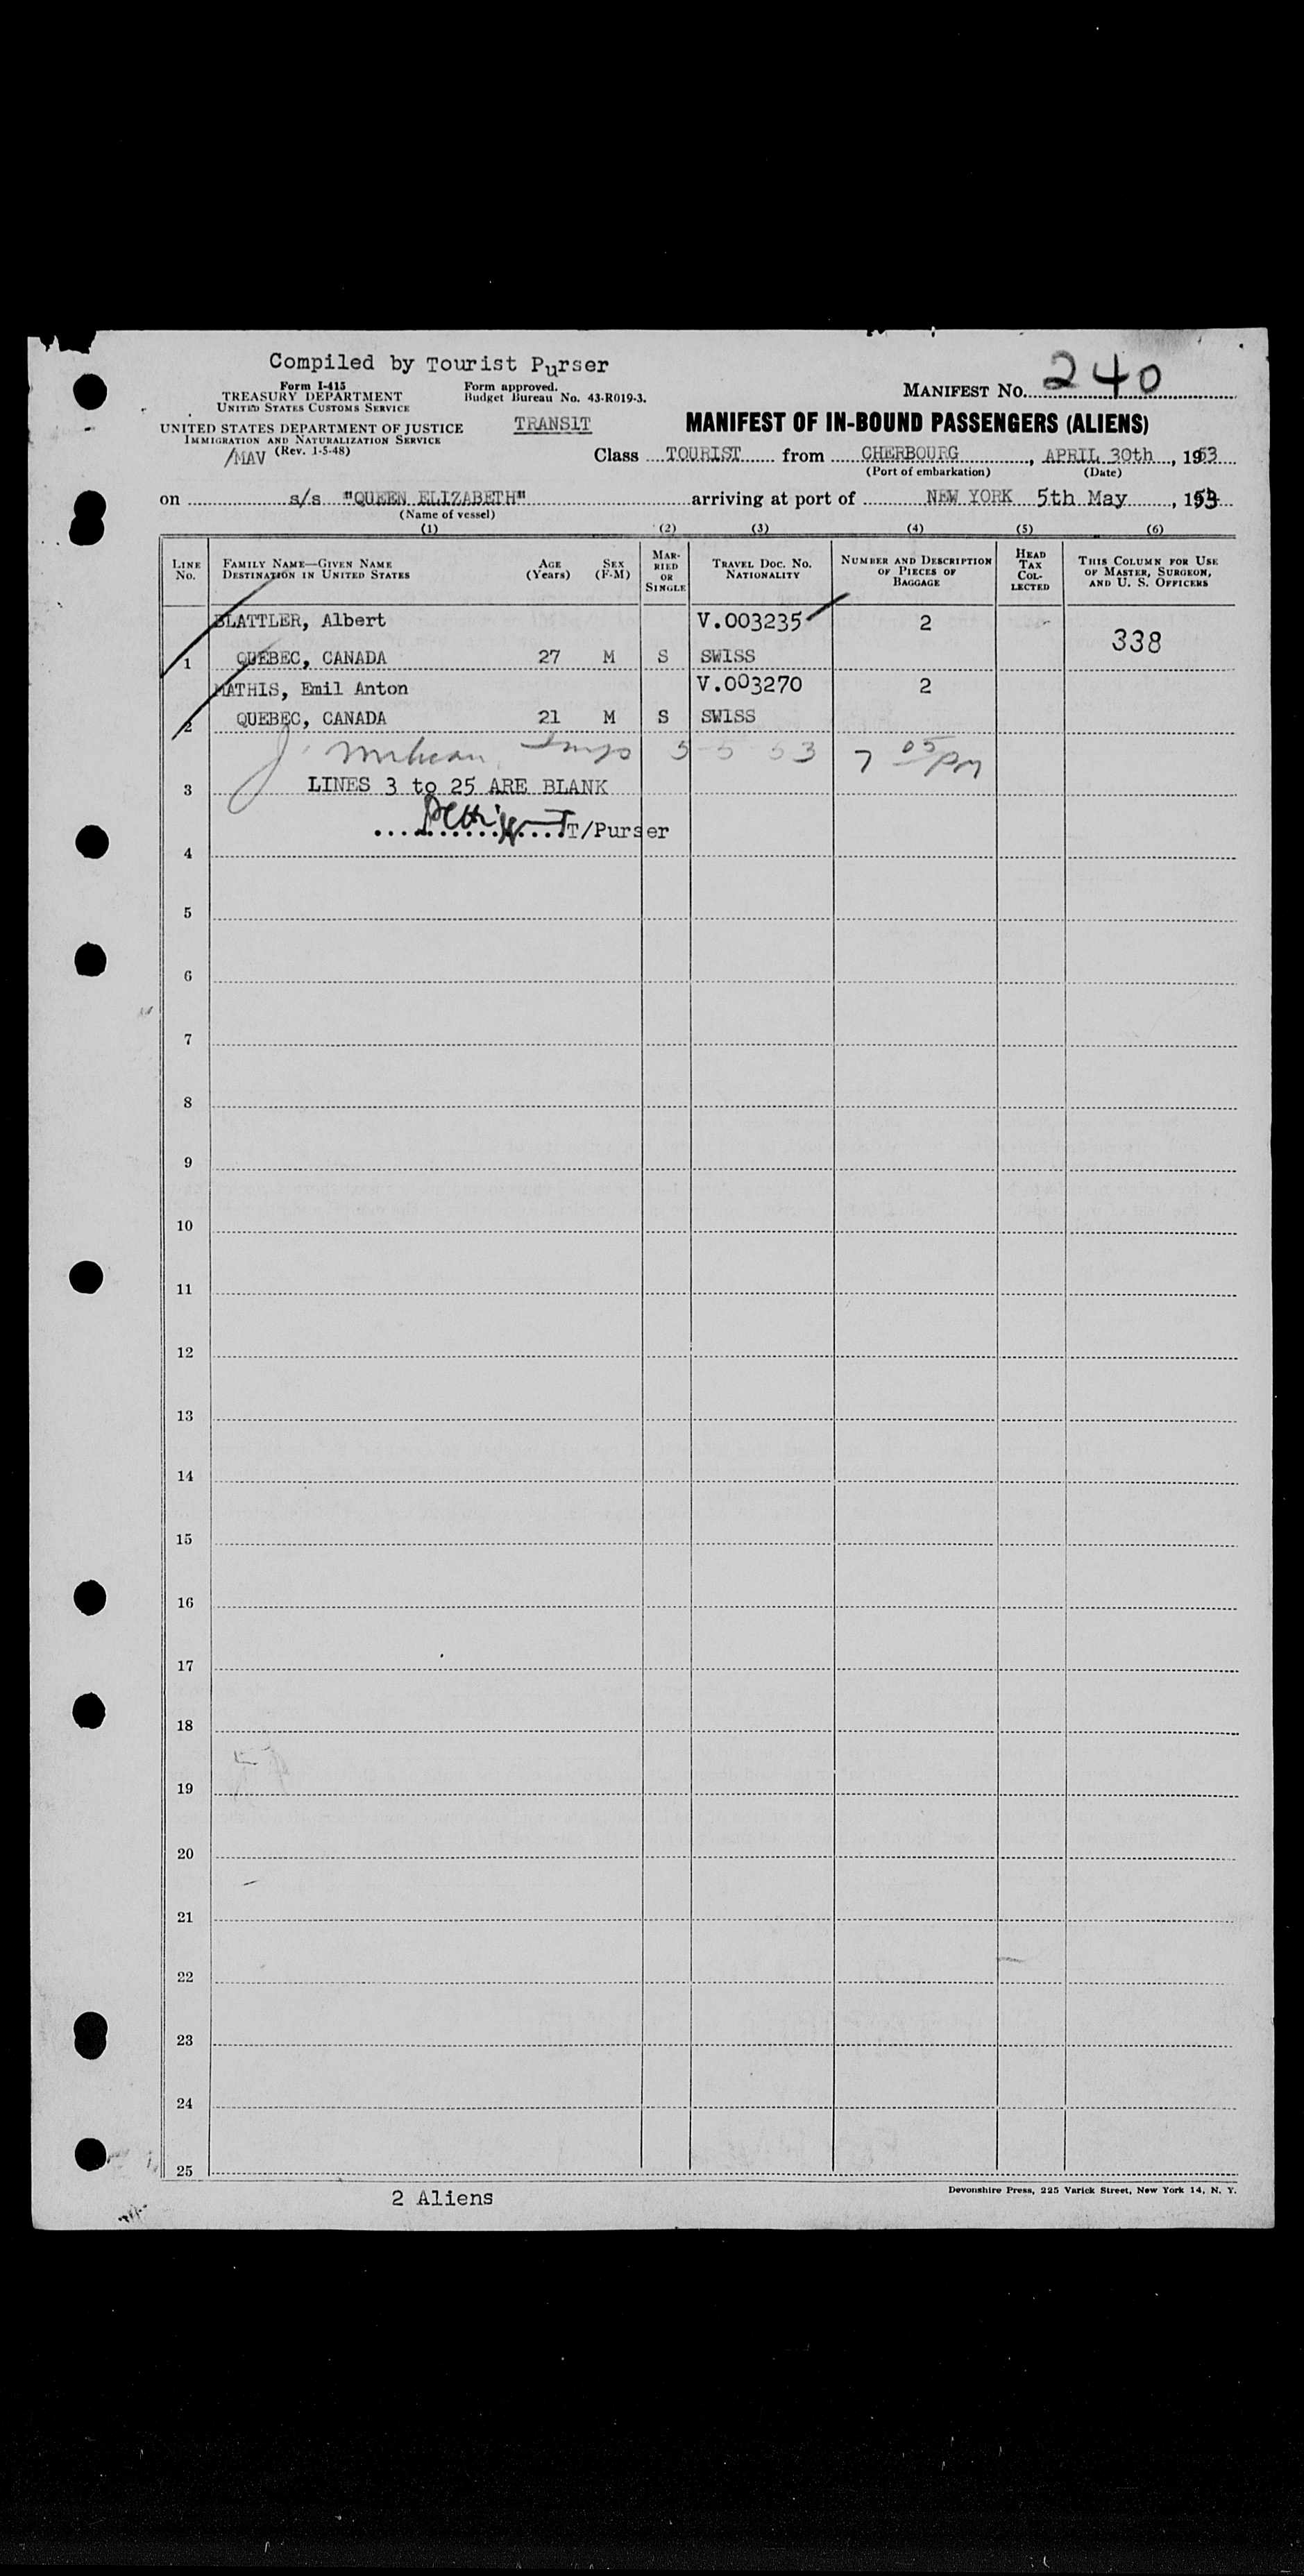 Compiled by Tourist Purser
Form I-415
TREASURY DEPARTMENT
UNITED STATES CUSTOMS SERVICE
Form approved.
Budget Bureau No. 43-R019-3.
MANIFEST No. 240
UNITED STATES DEPARTMENT OF JUSTICE
IMMIGRATION AND NATURALIZATION SERVICE
(Rev. 1-5-48)
/MAV
TRANSIT
MANIFEST OF IN-BOUND PASSENGERS (ALIENS)
Class TOURIST from CHERBOURG, APRIL 30th, 1953
(Port of embarkation) (Date)
on s/s "QUEEN ELIZABETH" arriving at port of NEW YORK 5th May, 1953
(Name of vessel)
(1) (2) (3) (4) (5) (6)
LINE No. FAMILY NAME—GIVEN NAME DESTINATION IN UNITED STATES AGE (Years) SEX (F-M) MARRIED OR SINGLE TRAVEL DOC. No. NATIONALITY NUMBER AND DESCRIPTION OF PIECES OF BAGGAGE HEAD TAX COLLECTED THIS COLUMN FOR USE OF MASTER, SURGEON, AND U. S. OFFICERS
BLATTLER, Albert V.003235 2 338
1 QUEBEC, CANADA 27 M S SWISS
MATHIS, Emil Anton V.003270 2
2 QUEBEC, CANADA 21 M S SWISS
5-5-53 7 05 PM
3 LINES 3 to 25 ARE BLANK
T/Purser
4
5
6
7
8
9
10
11
12
13
14
15
16
17
18
19
20
21
22
23
24
25
2 Aliens
Devonshire Press, 225 Varick Street, New York 14, N. Y.